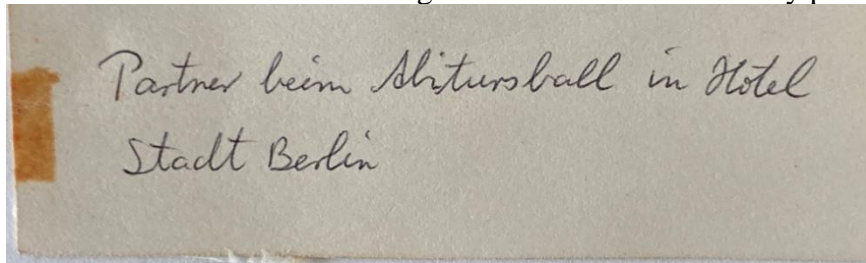 Partner beim Abitursball in Hotel
Stadt Berlin